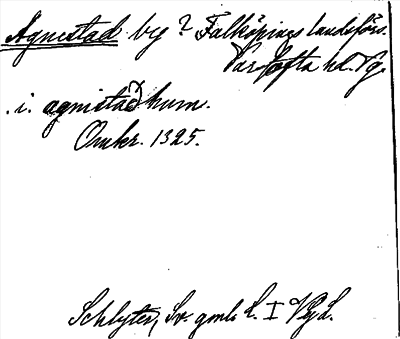 Agnestad by? Falköpings landsförs.
Vartofta hd. Vg.
.i. agnistadhum.
Omkr. 1325.
Schlyter, Sv. gml. L. I Vgl.